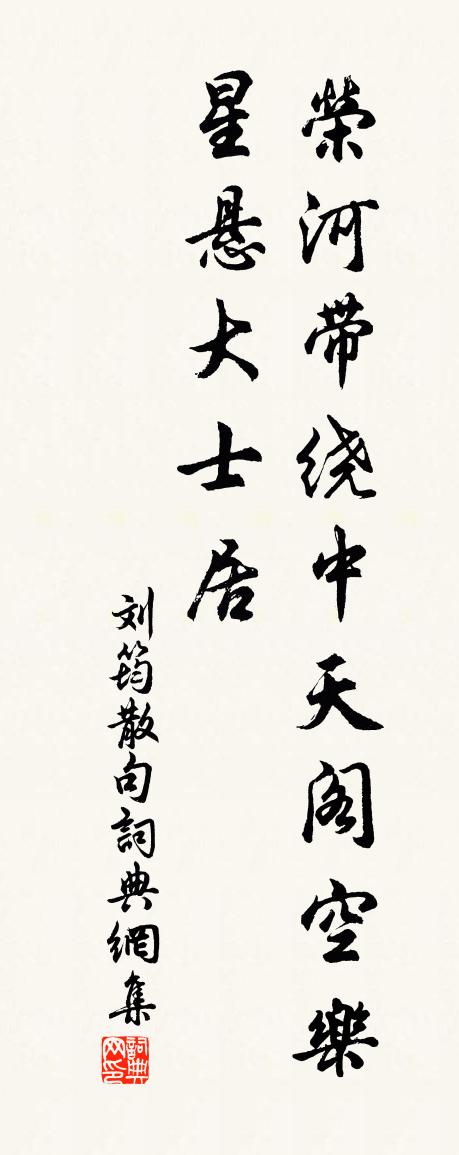 榮河带绕中天阁空樂
星悬大士居
刘筠散句詞典網集
詞典网印